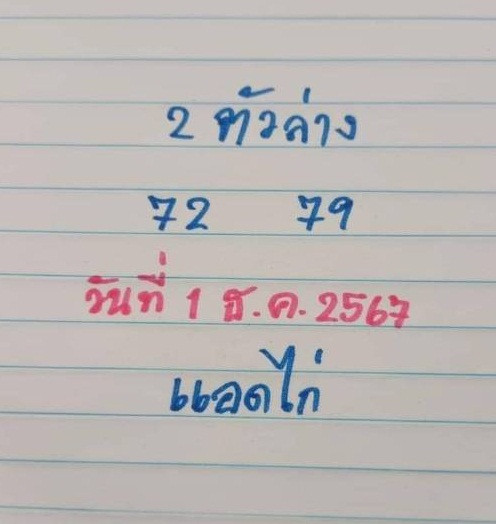 2 ตัวล่าง
72 79
วันที่ 1 ธ.ค. 2567
แอดไก่